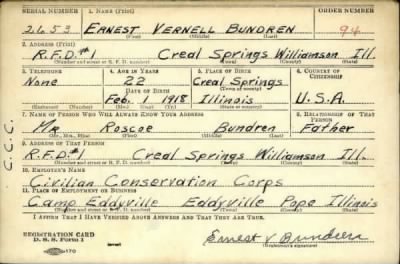 SERIAL NUMBER 1. NAME (Print) ORDER NUMBER
2653 ERNEST VERNELL BUNDREN 94
(First) (Middle) (Last)
2. ADDRESS (Print)
R.F.D.#1 Creal Springs Williamson Ill.
(Number and street or R. F. D. number) (Town) (County) (State)
3. TELEPHONE 4. AGE IN YEARS 5. PLACE OF BIRTH 6. COUNTRY OF CITIZENSHIP
None 22 Creal Springs
DATE OF BIRTH (Town or county)
Feb. 1 1918 Illinois U.S.A.
(Exchange) (Number) (Mo.) (Day) (Yr.) (State or country)
7. NAME OF PERSON WHO WILL ALWAYS KNOW YOUR ADDRESS 8. RELATIONSHIP OF THAT PERSON
Mr. Roscoe Bundren Father
(Mr., Mrs., Miss) (First) (Middle) (Last)
9. ADDRESS OF THAT PERSON
R.F.D.#1 Creal Springs Williamson Ill.
(Number and street or R. F. D. number) (Town) (County) (State)
10. EMPLOYER'S NAME
Civilian Conservation Corps
11. PLACE OF EMPLOYMENT OR BUSINESS
Camp Eddyville Eddyville Pope Illinois
(Number and street or R. F. D. number) (Town) (County) (State)
I AFFIRM THAT I HAVE VERIFIED ABOVE ANSWERS AND THAT THEY ARE TRUE.
REGISTRATION CARD
D. S. S. Form 1 (over) Ernest V Bundren
(Registrant's signature)
C.C.C.